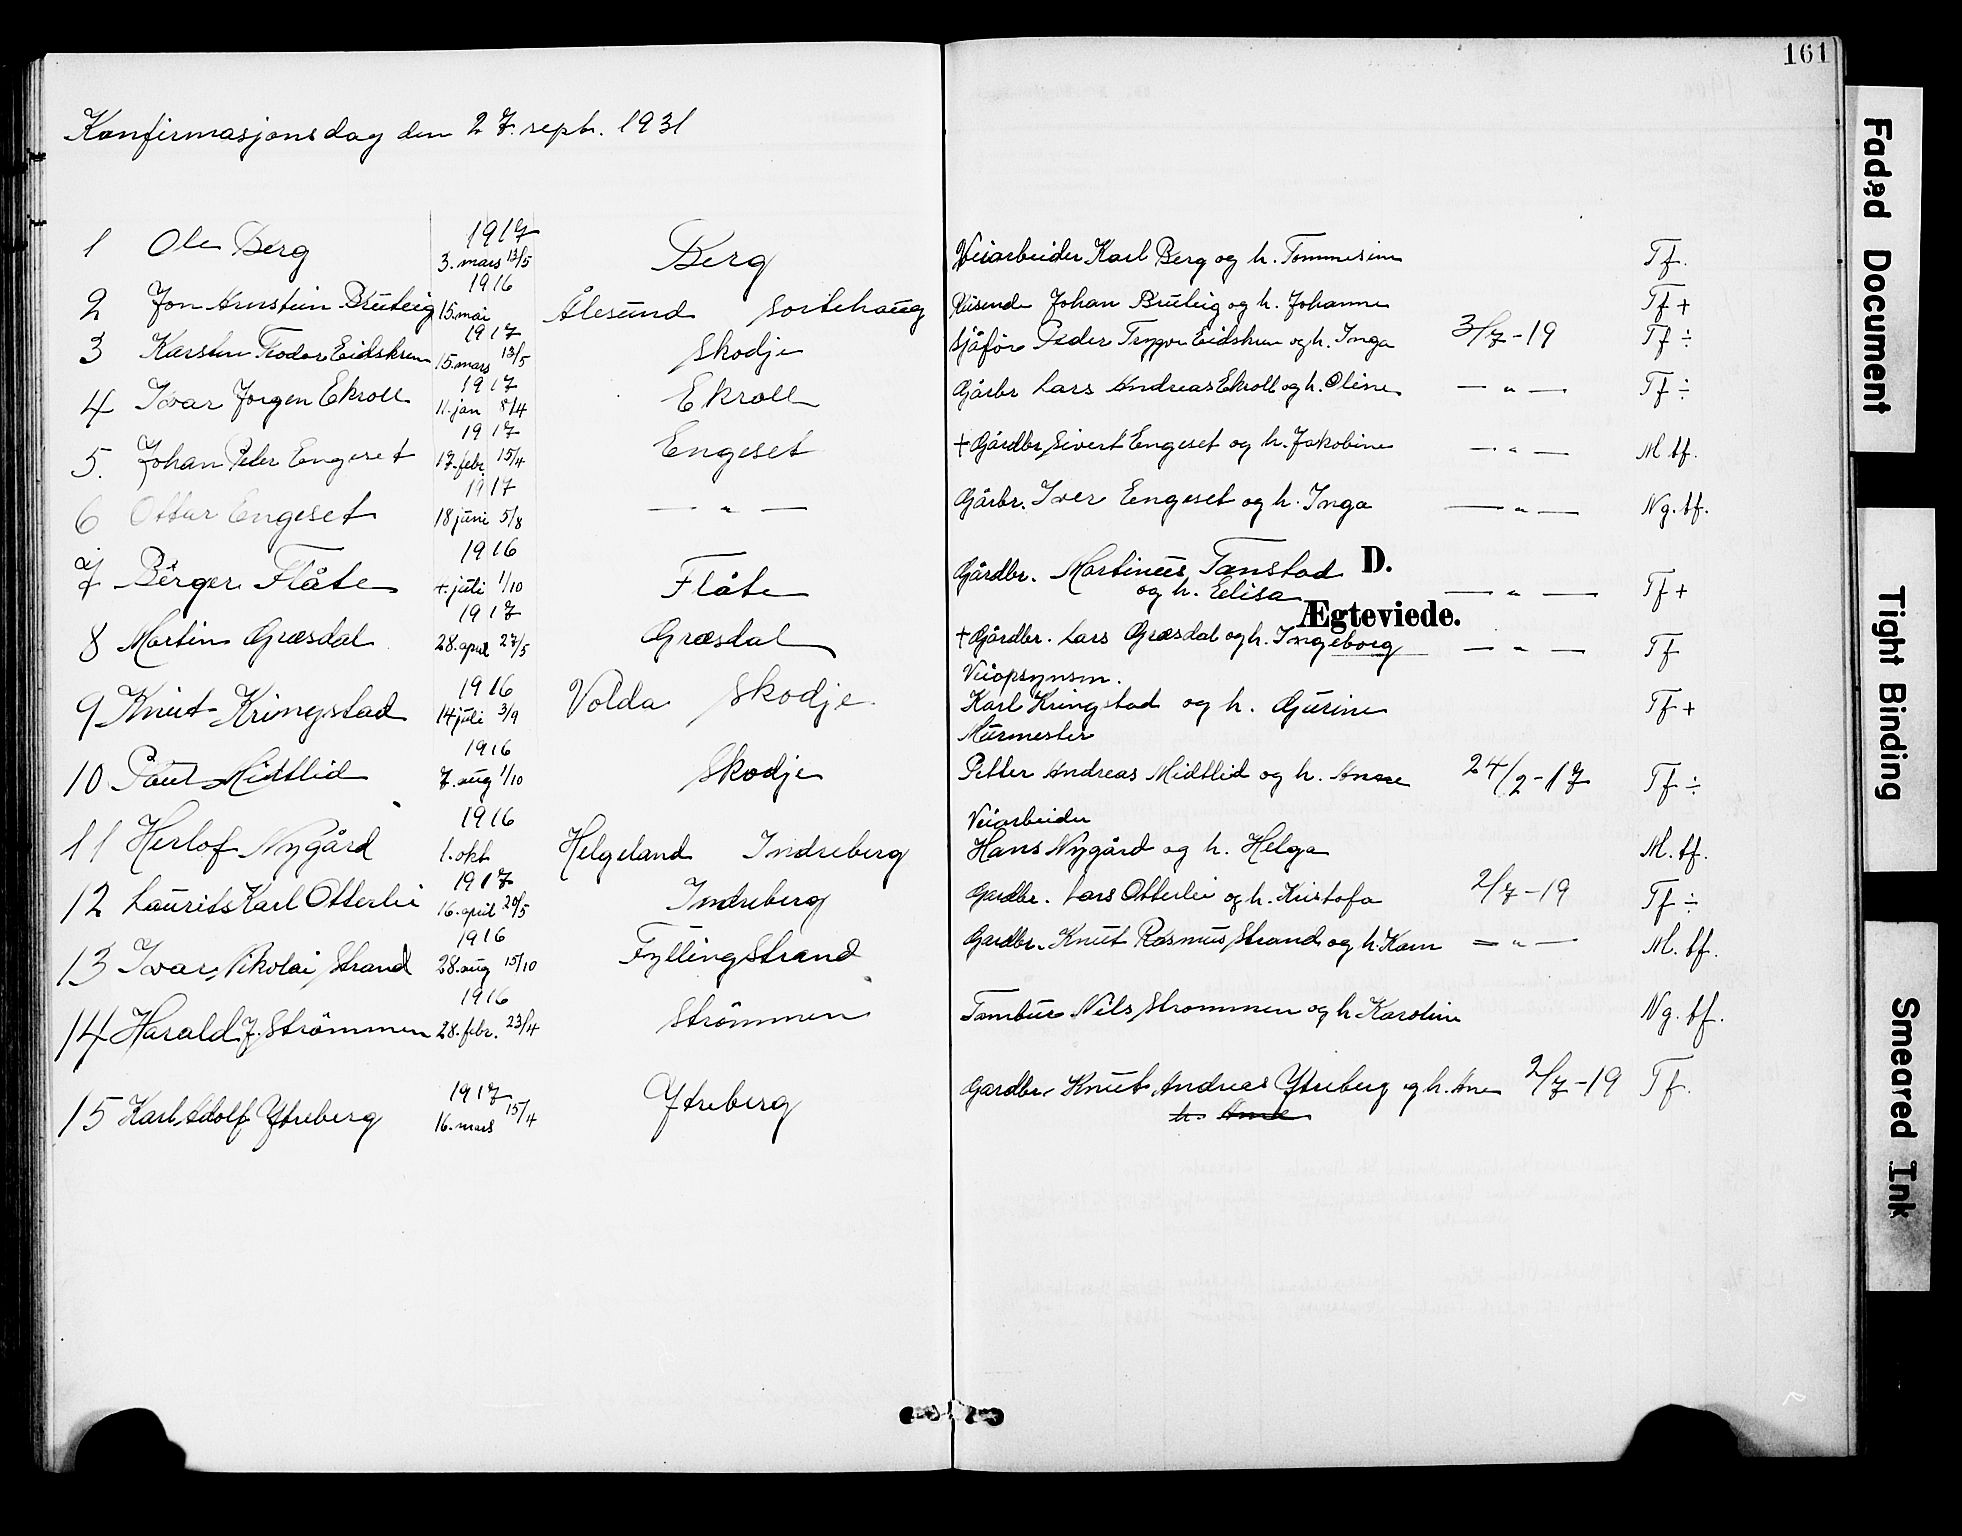 161
Konfirmasjonsdag den 27. sept. 1931
1 Ole Berg 1917 3. mars 13/5 Berg Veiarbeider Karl Berg og h. Tommesine Tf.
2 Jon Arnstein Bruteig 1916 15. mai Ålesund Sortehaug Reisende Johan Bruteig og h. Johanne Tf +
3 Karsten Teodor Eidskrem 1917 15. mars 13/5 Skodje Sjåfør Peder Trygve Eidskrem og h. Inga 3/7-19 Tf ÷
4 Ivar Jørgen Ekroll 1917 11. jan 8/4 Ekroll Gårbr Lars Andreas Ekroll og h. Oline — " — Tf ÷
5. Johan Peter Engeset 1917 17. febr. 15/4 Engeset + Gårdbr. Sivert Engeset og h. Jakobine — " — M. tf.
6 Ottar Engeset 1917 18 juni 5/8 — " — Gårbr. Iver Engeset og h. Inga — " — Ng. tf.
7 Birger Flåte 1916 4. juli 1/10 Flåte Gårdbr. Martinus Tanstad D.
og h. Elisa — " — Tf +
Ægteviede.
8 Martin Græsdal 1917 28. april 27/5 Græsdal + Gårdbr. Lars Græsdal og h. Ingeborg — " — Tf
Veiopsynsm.
9 Knut Kringstad 1916 14 juli 3/9 Volda Skodje. Karl Kringstad og h. Gurine Tf +
Murmester
10 Paul Midtlid 1916 7. aug 1/10 Skodje Petter Andreas Midtlid og h. Anne 24/2-17 Tf ÷
Veiarbeider
11 Herlof Nygård 1916 1. okt Helgeland Indreberg Hans Nygård og h. Helga M. tf.
12 Laurits Karl Otterlei 1917 16. april 20/5 Indreberg Gardbr. Lars Otterlei og h. Kristofa 2/7-19 Tf ÷
13 Ivar Nikolai Strand 1916 28. aug 15/10 Fyllingstrand Gardbr. Knut Rasmus Strand og h. Karn — " — M. tf.
14 Harald J. Strömmen 1916 28. febr. 23/4 Strömmen Tambur Nils Strommen og h Karoline Ng. tf.
15 Karl Adolf Ytreberg 1917 16. mars 15/4 Ytreberg Gardbr. Knut Andreas Ytreberg og h. Ane 2/7-19 Tf.
h. Anne
Faded Document
Tight Binding
Smeared Ink